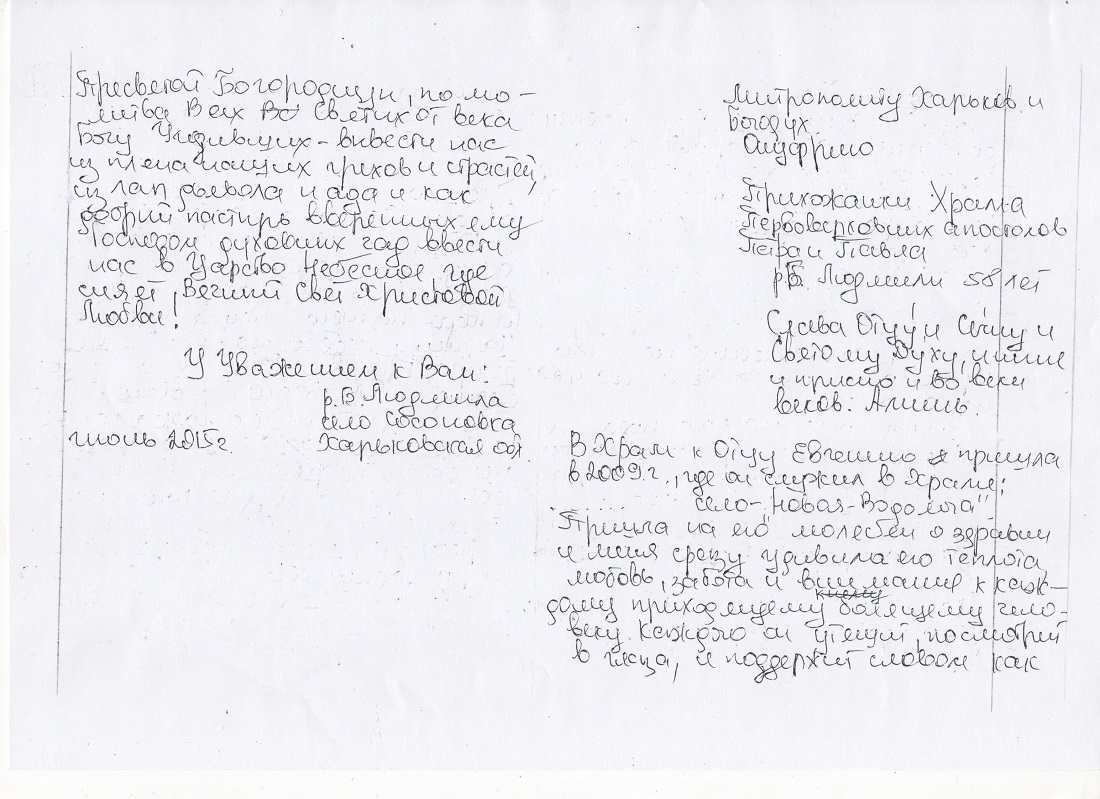 Митрополиту Харьков. и
Богодух.
Онуфрию
Прихожанки Храма
Первоверховних апостолов
Петра и Павла
р.Б. Людмили 58 лет
Слава Отцу и Сину и
Святому Духу, и нине
и присно и во веки
веков. Аминь.
В Храм к Отцу Евгению я пришла
в 2009 г., где он служил в Храме:
село-„Новая-Водолага"
Пришла на его молебен о здравии
и меня сразу удивила его теплота
любовь, забота и внимание к каж-
дому приходящему болящему чело-
веку. Каждого он утешит, посмотрит
в глаза, и поддержит словом как
Пресветой Богородици, по мо-
литва Всех Светих от века
Богу Угодивших - вивести нас
из плена наших грехов и страстей,
из лап дьявола и ада и как
добрий пастирь вверенних ему
Господом духовних чад ввести
нас в Царство Небесное, где
сияет, Вечний Свет Христовой
Любви!
У Уважением к Вам:
р.Б. Людмила
село Сосоновка
июль 2015г. Харьковская обл.